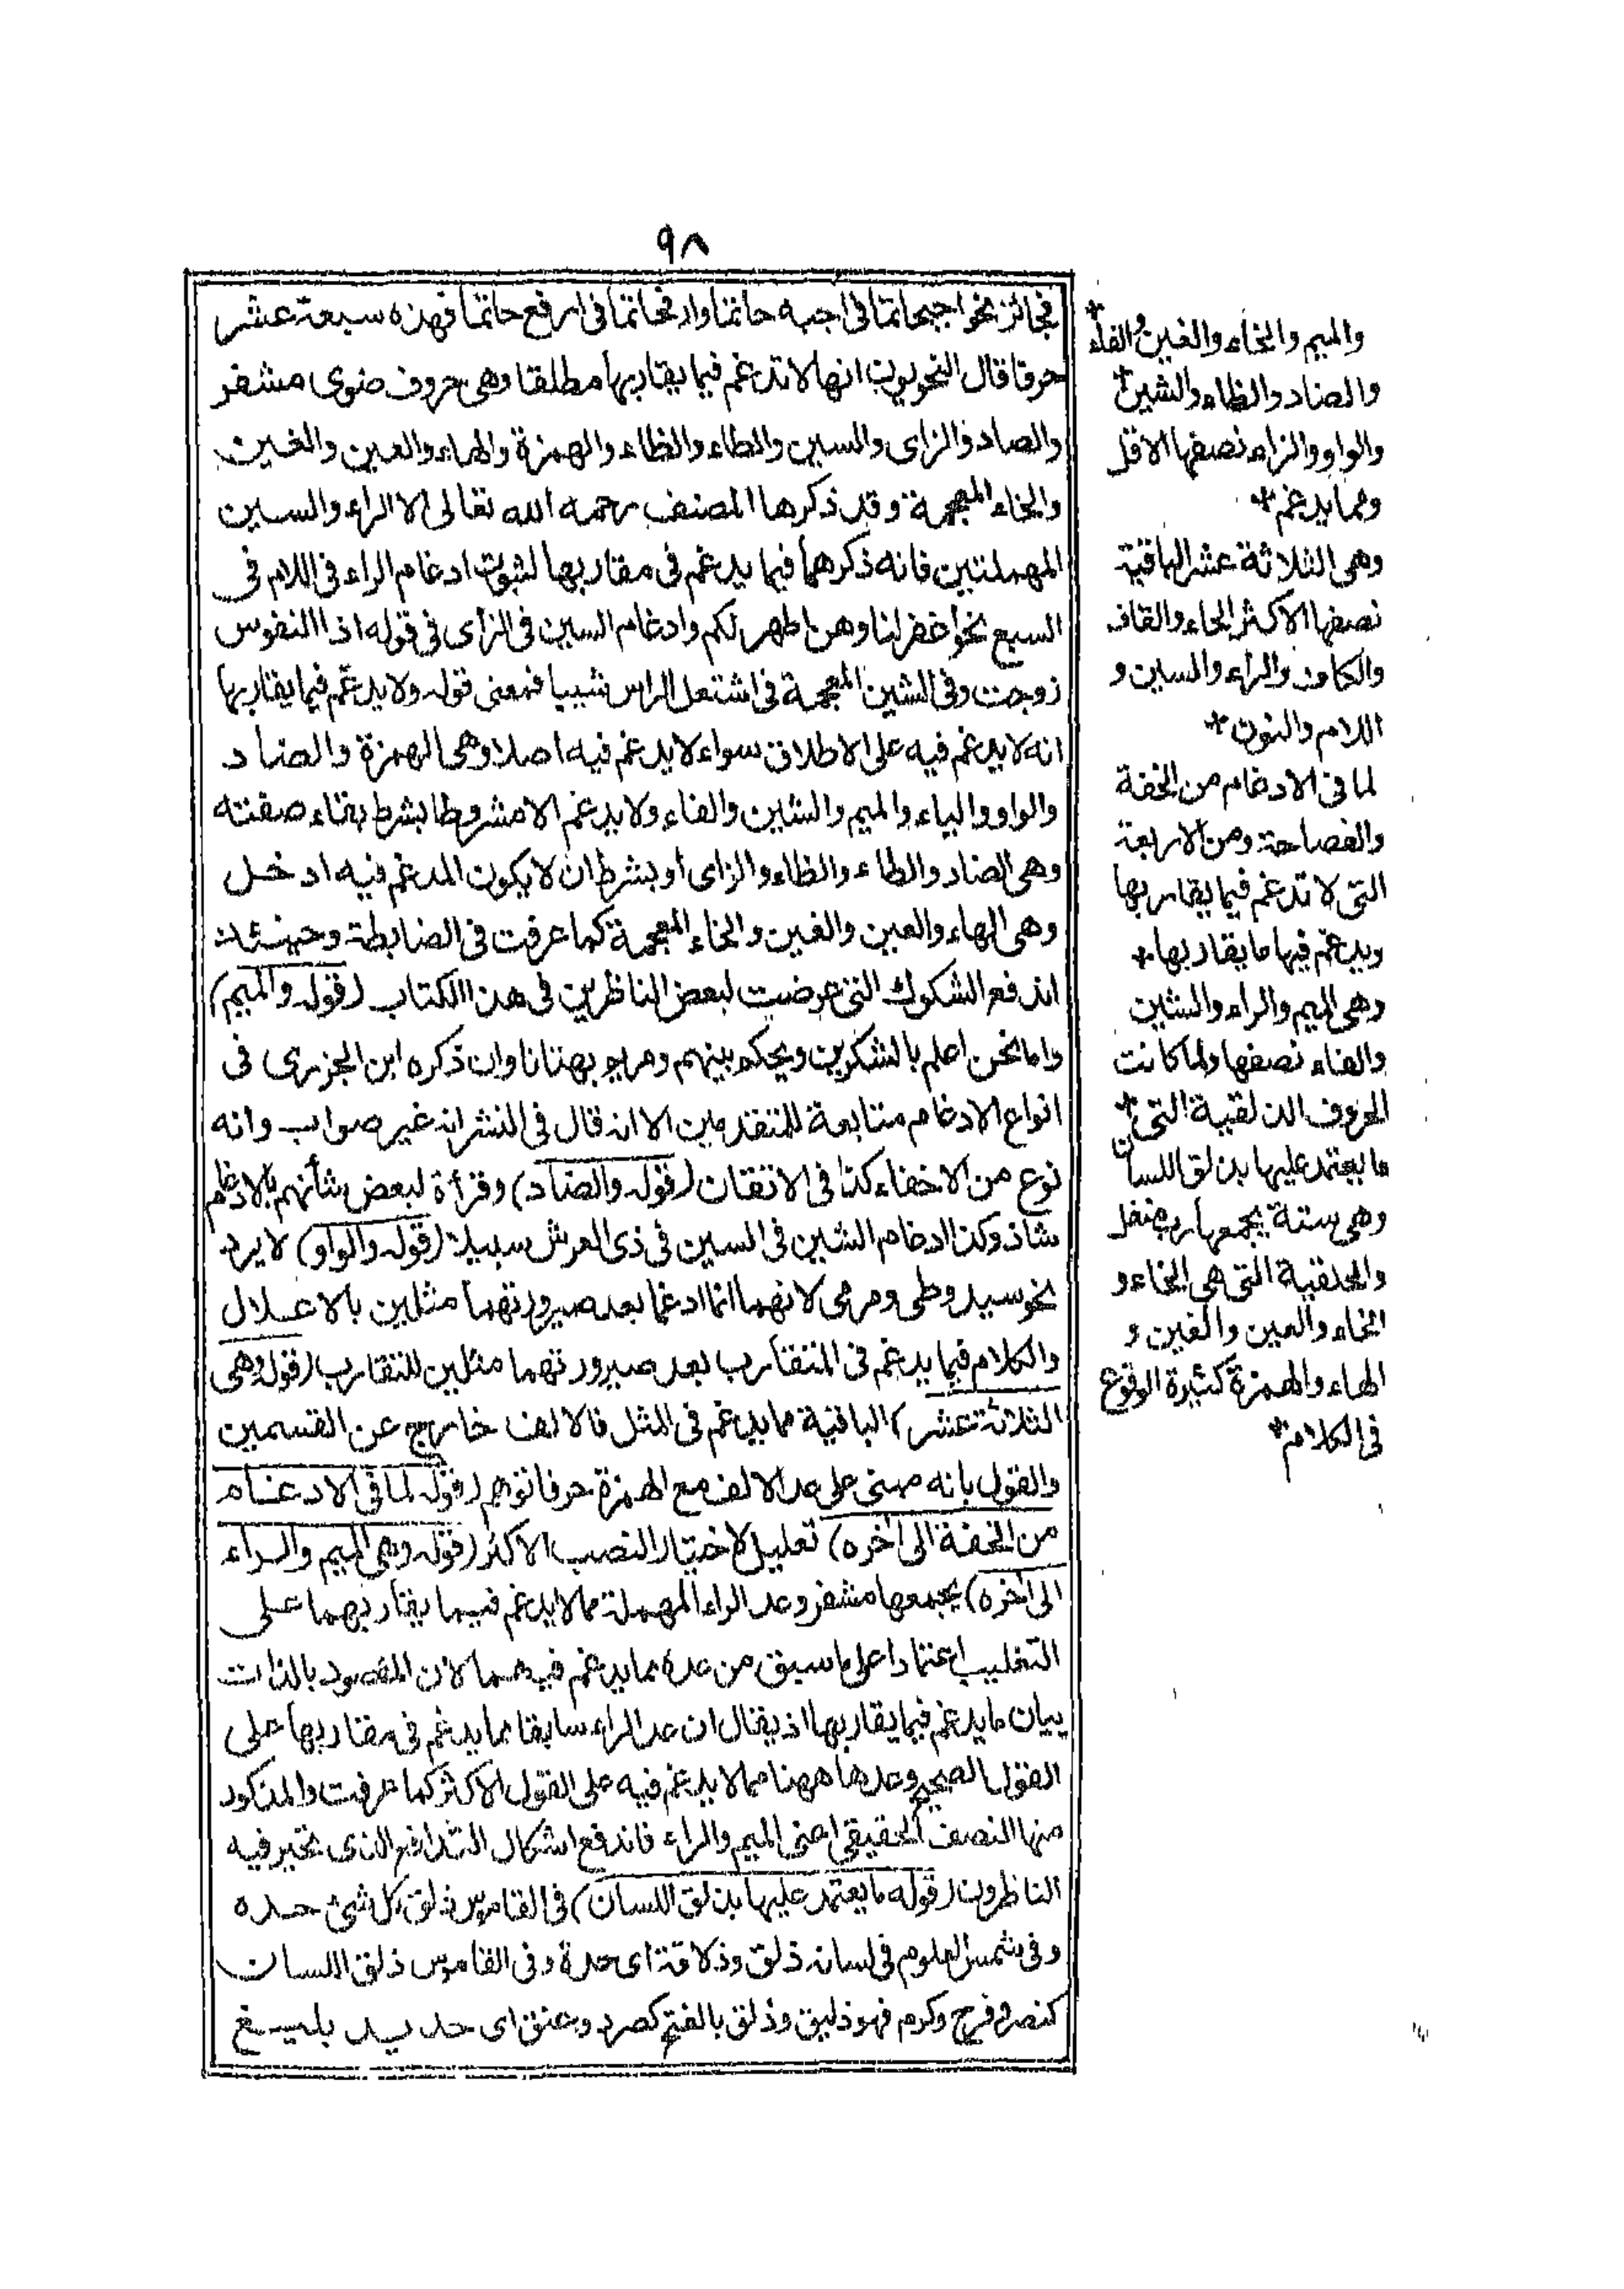 ٩٨
فجائز نحو اجبحاتما فى اجبه حاتما وارفحاتما فى ارفع حاتما فهذه سبعة عشر
حرفا قال النحويون انها لا تدغم فيما يقاربها مطلقا وهى حروف ضوى مشفر
والصاد والزاى والسين والطاء والظاء والهمزة والهاء والعين والغين
والخاء المعجمة وقد ذكرها المصنف رحمه الله تعالى الا الراء والسين
المهملتين فانه ذكرهما فيما يدغم فى مقاربها لثبوت ادغام الراء فى اللام فى
السبع نحو اغفر لنا وهن اطهر لكم وادغام السين فى الزاى فى قوله اذا النفوس
زوجت وفى الشين المعجمة فى اشتعل الراس شيبا فمعنى قوله ولا يدغم فيما يقاربها
انه لا يدغم فيه على الاطلاق سواء لا يدغم فيه اصلا وهى الهمزة والضاد
والواو والياء والميم والشين والفاء ولا يدغم الا مشروطا بشرط بقاء صفته
وهى الصاد والطاء والظاء والزاى أو بشرط ان لا يكون المدغم فيه ادخل
وهى الهاء والعين والغين والخاء المعجمة كما عرفت فى الضابطة وحينئذ
اندفع الشكوك التى عرضت لبعض الناظرين فى هذا الكتاب (قوله والميم)
واما نحن اعلم بالشكرين ويحكم بينهم ومريم بهتانا وان ذكره ابن الجزرى فى
انواع الادغام متابعة للمتقدمين الا انه قال فى النشر انه غير صواب وانه
نوع من الاخفاء كذا فى الاتقان (قوله والضاد) وقرأة لبعض شأنهم بالادغام
شاذ وكذا ادغام الشين فى السين فى ذى العرش سبيلا (قوله والواو) لا يرد
نحو سيد وطى ومرمى لانهما انما ادغما بعد صيرورتهما مثلين بالاعلال
والكلام فيما يدغم فى المتقارب بعد صيرورتهما مثلين للتقارب (قوله وهى
الثلاثة عشر) الباقية مما يدغم فى المثل فالالف خارج عن القسمين
والقول بانه مبنى على عد الالف مع الهمزة حرفا توهم (قوله لما فى الادغام
من الخفة الى آخره) تعليل لاختيار النصب الاكثر (قوله وهى الميم والراء
الى آخره) يجمعها مشفر وعد الراء المهملة مما لا يدغم فيما يقاربهما على
التغليب اعتمادا على ما سبق من عده مما يدغم فيهما لان المقصود بالذات
بيان ما يدغم فيما يقاربها اذ يقال ان عد الراء سابقا مما يدغم فى مقاربها على
القول الصحيح وعدها ههنا مما لا يدغم فيه على القول الاكثر كما عرفت والمذكور
منها النصف الحقيقى اعنى الميم والراء فاندفع اشكال التدافع الذى تحير فيه
الناظرون (قوله ما يعتمد عليها بذلق اللسان) فى القاموس ذلق كل شئ حده
وفى شمس العلوم فى لسانه ذلق وذلاقة اى حدة وفى القاموس ذلق اللسان
كنصر وفرح وكرم فهو ذليق وذلق بالفتح كصرد وعنق اى حديد بليغ
والميم والخاء والغين والفاء
والضاد والظاء والشين
والواو والزاء نصفها الاقل
ومما يدغم
وهى الثلاثة عشر الباقية
نصفها الاكثر الحاء والقاف
والكاف والراء والسين و
اللام والنون
لما فى الادغام من الخفة
والفصاحة ومن الاربعة
التى لا تدغم فيما يقاربها
ويدغم فيها ما يقاربها
وهى الميم والراء والشين
والفاء نصفها ولما كانت
الحروف الذلقية التى
ما يعتمد عليها بذلق اللسان
وهى ستة يجمعها رب منفل
والحلقية التى هى الحاء و
الخاء والعين والغين و
الهاء والهمزة كثيرة الوقوع
فى الكلام